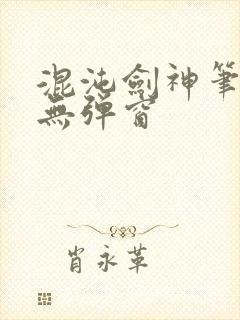 混沌劍神筆
無彈窗
肖永革